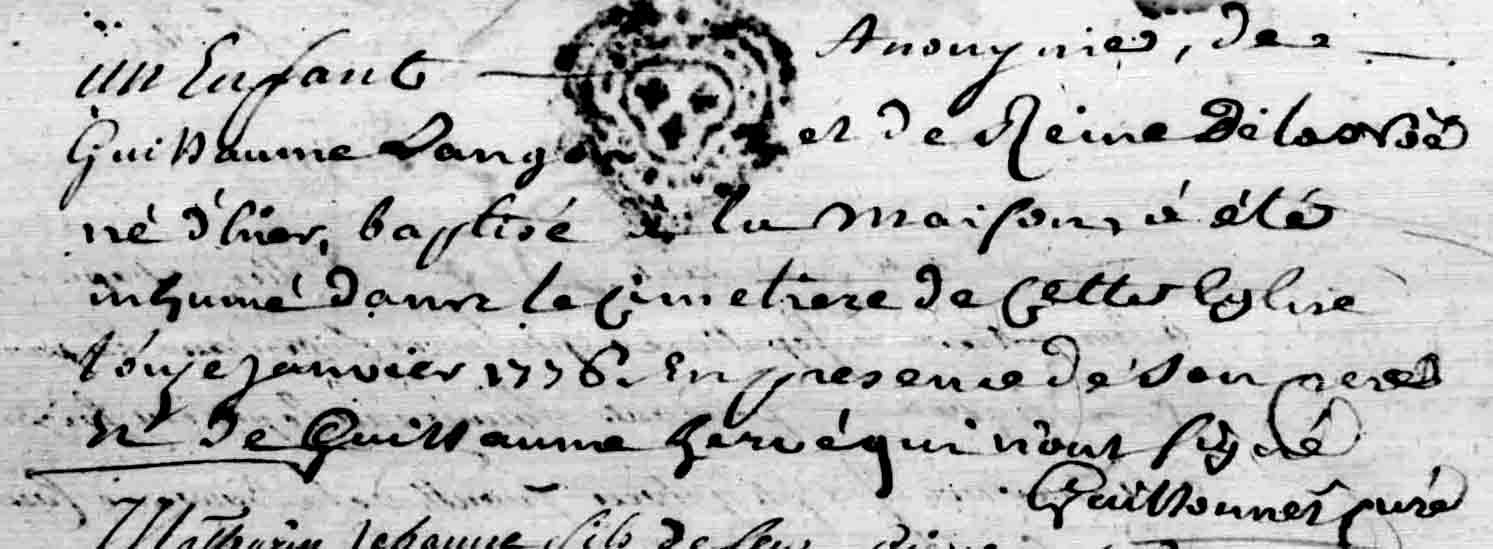 un Enfant Anonyme, de
Guillaume et de Reine
né d'hier, baptisé à la maison, à été
inhumé dans le Cimetiere de Cette Eglise
l'onze janvier 1776. En presence de son pere
et de Guillaume hervé qui n'ont signé
Guillonnet curé
Mathurin fils de feu